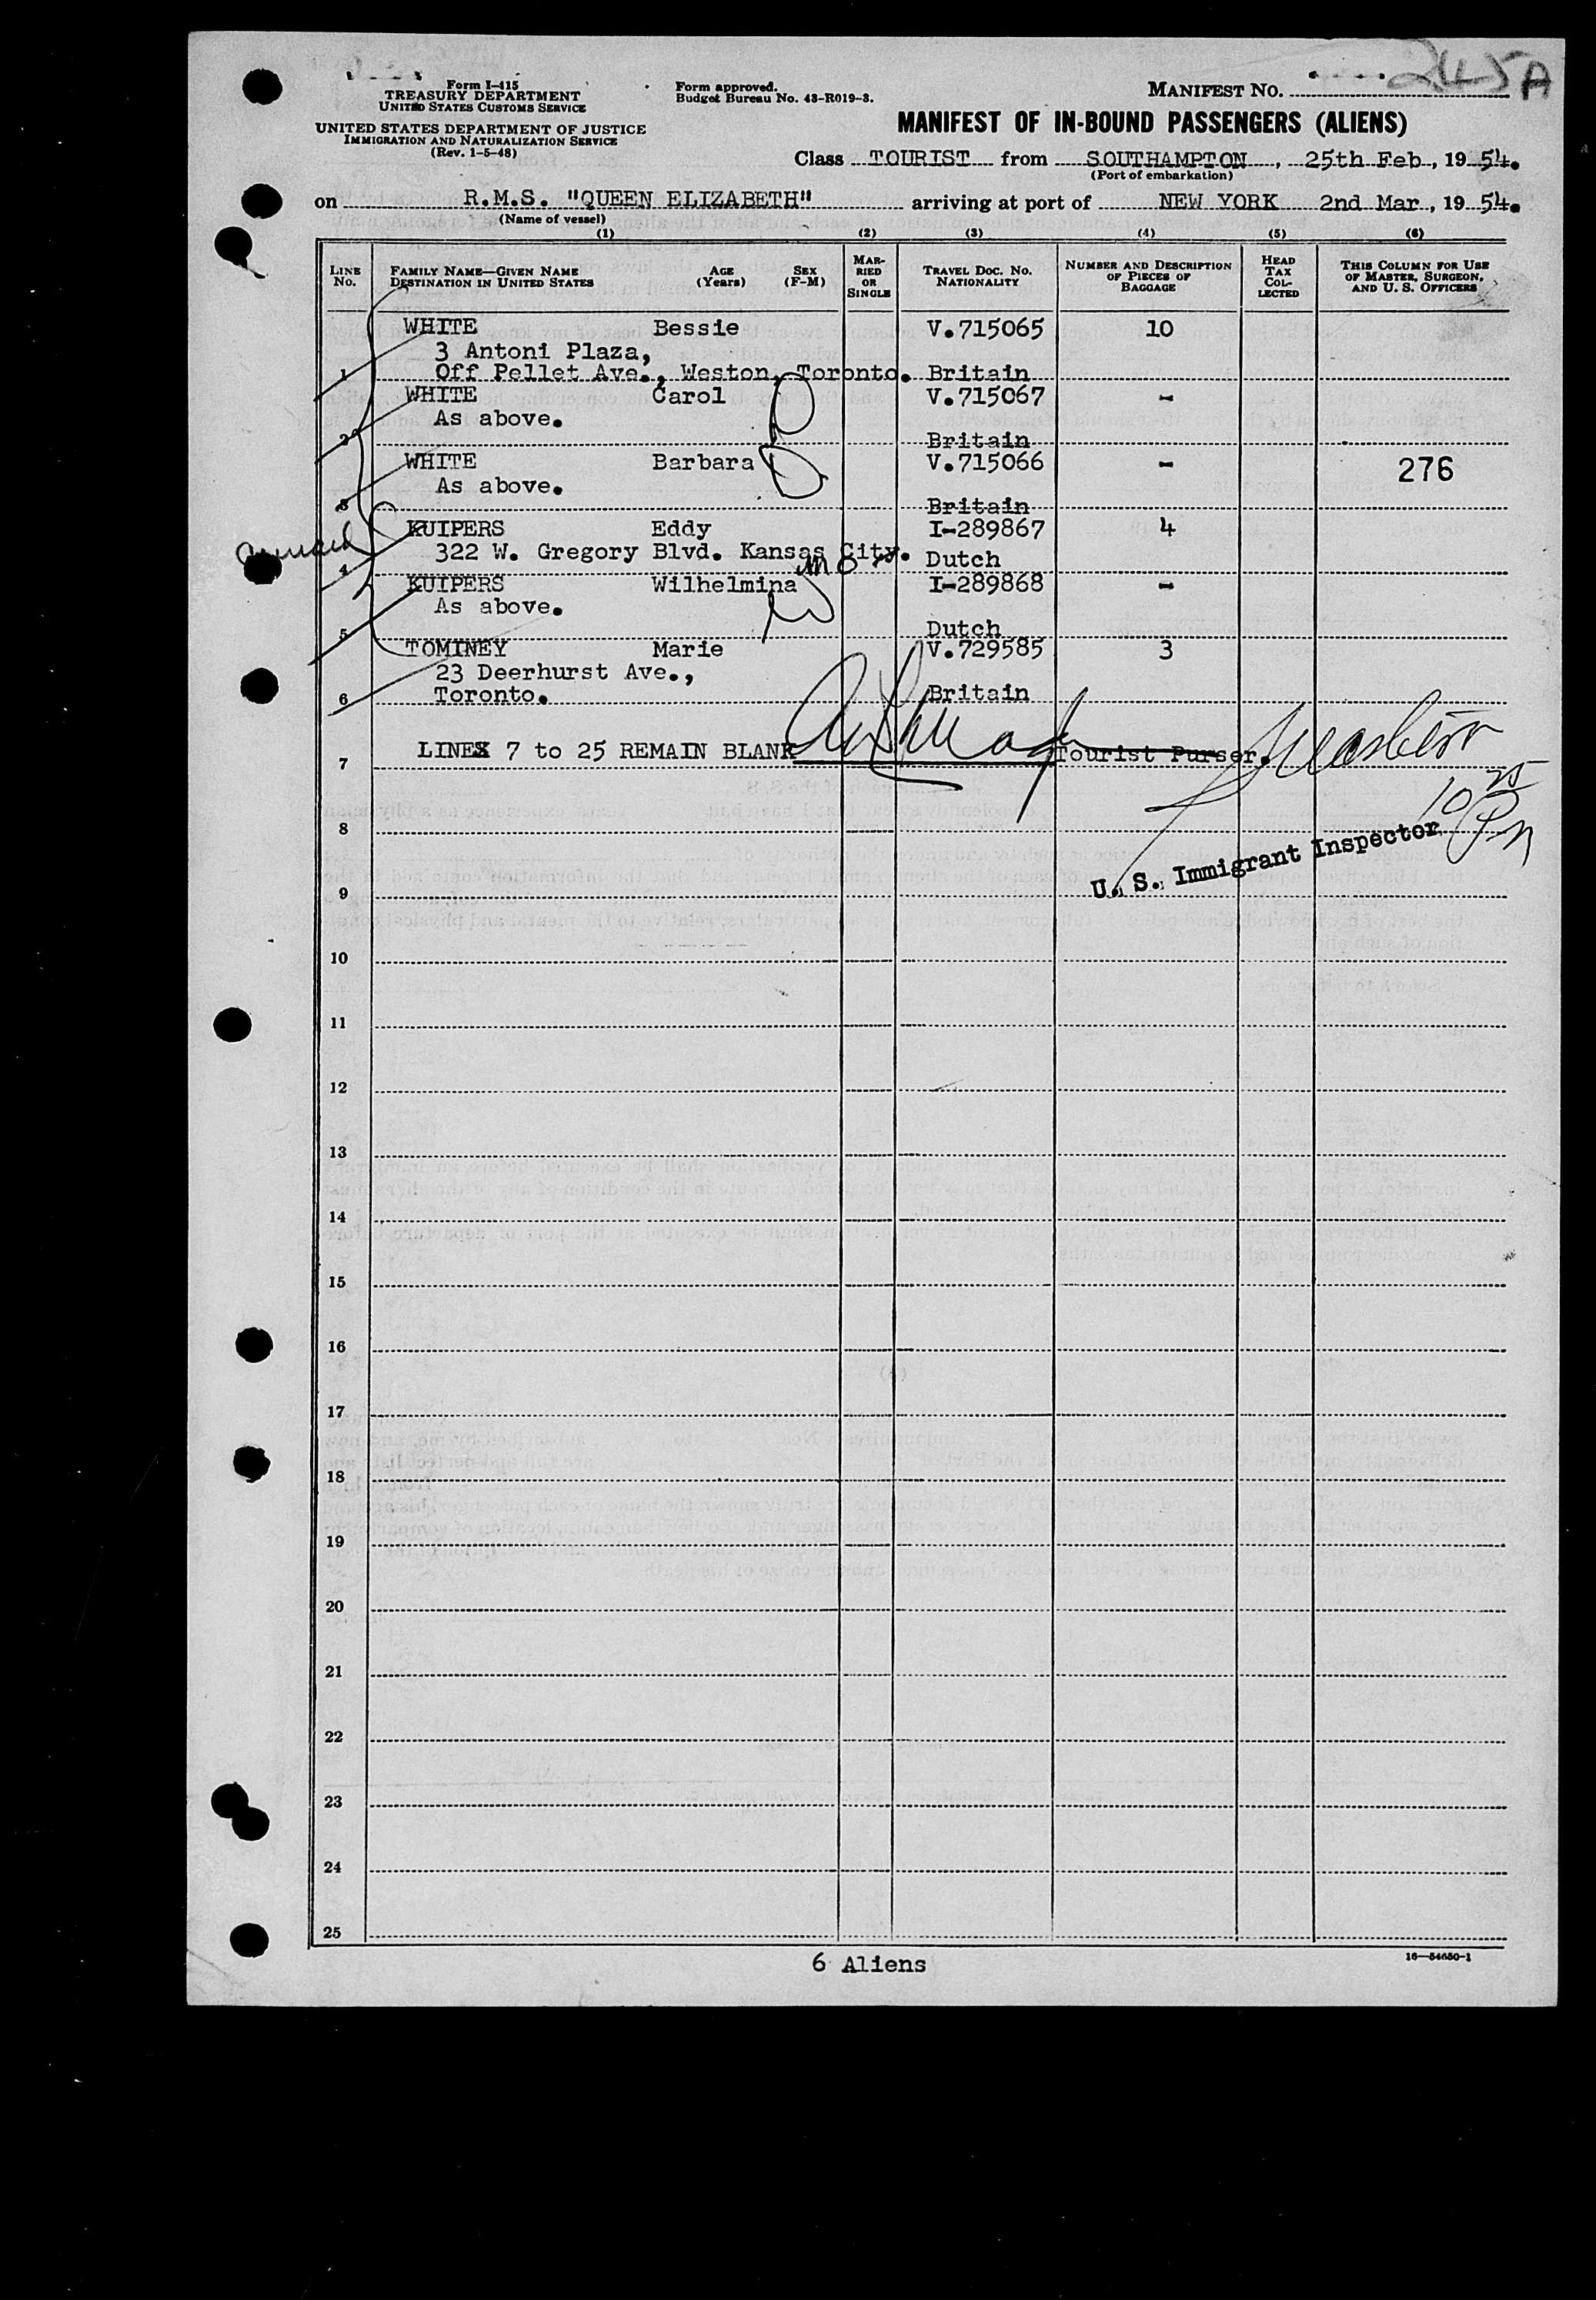 245A
Form I-415
TREASURY DEPARTMENT
UNITED STATES CUSTOMS SERVICE
UNITED STATES DEPARTMENT OF JUSTICE
IMMIGRATION AND NATURALIZATION SERVICE
(Rev. 1-5-48)
Form approved.
Budget Bureau No. 43-R019-3.
MANIFEST NO.
MANIFEST OF IN-BOUND PASSENGERS (ALIENS)
Class TOURIST from SOUTHAMPTON, 25th Feb, 19 54.
(Port of embarkation)
on R.M.S. "QUEEN ELIZABETH" arriving at port of NEW YORK 2nd Mar, 19 54.
(Name of vessel)
(1) (2) (3) (4) (5) (6)
LINE NO. FAMILY NAME—GIVEN NAME DESTINATION IN UNITED STATES AGE (Years) SEX (F-M) MARRIED OR SINGLE TRAVEL DOC. NO. NATIONALITY NUMBER AND DESCRIPTION OF PIECES OF BAGGAGE HEAD TAX COLLECTED THIS COLUMN FOR USE OF MASTER, SURGEON, AND U. S. OFFICERS
WHITE Bessie V.715065 10
3 Antoni Plaza,
1 Off Pellet Ave., Weston, Toronto. Britain
WHITE Carol V.715067 -
As above.
2 Britain
WHITE Barbara V.715066 - 276
As above.
3 Britain
KUIPERS Eddy I-289867 4
322 W. Gregory Blvd. Kansas City. Dutch
4 Mo
KUIPERS Wilhelmina I-289868 -
As above.
5 Dutch
TOMINEY Marie V.729585 3
23 Deerhurst Ave.,
6 Toronto. Britain
7 LINES 7 to 25 REMAIN BLANK Tourist Purser.
10 25 PM
8
U. S. Immigrant Inspector
9
10
11
12
13
14
15
16
17
18
19
20
21
22
23
24
25
6 Aliens
16—54650-1